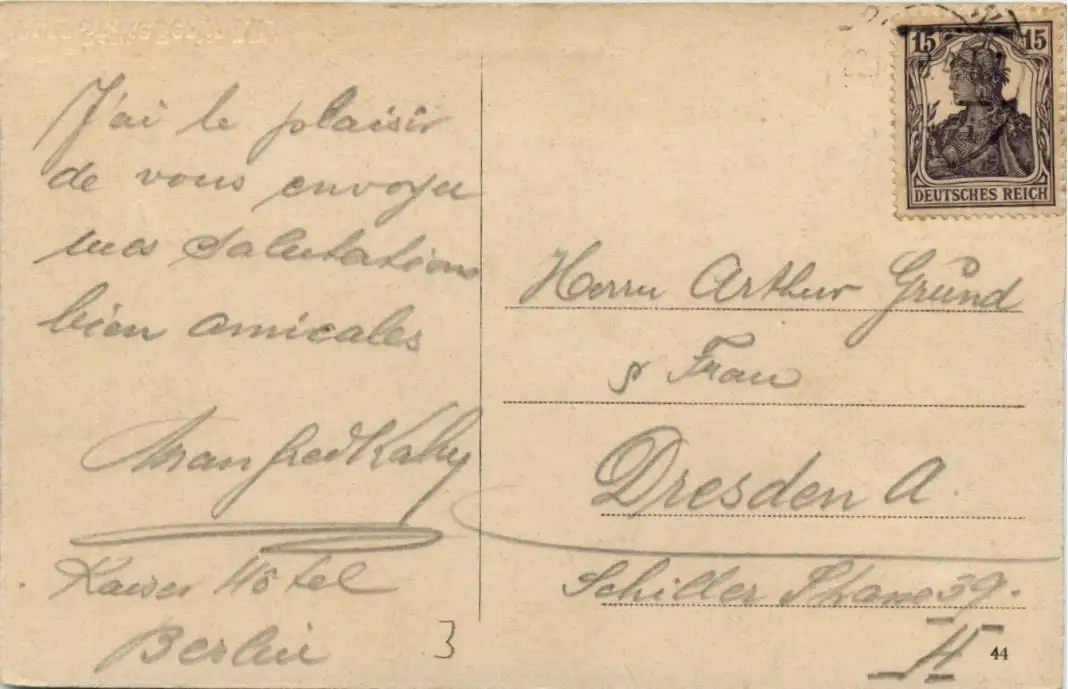 J'ai le plaisir
de vous envoyer
mes salutations
bien amicales
Manfred
Kaiser Hôtel
Berlin
3
15 15
DEUTSCHES REICH
Herrn Arthur Gründ
& Frau
Dresden A.
Schiller Strasse 39.
II
44